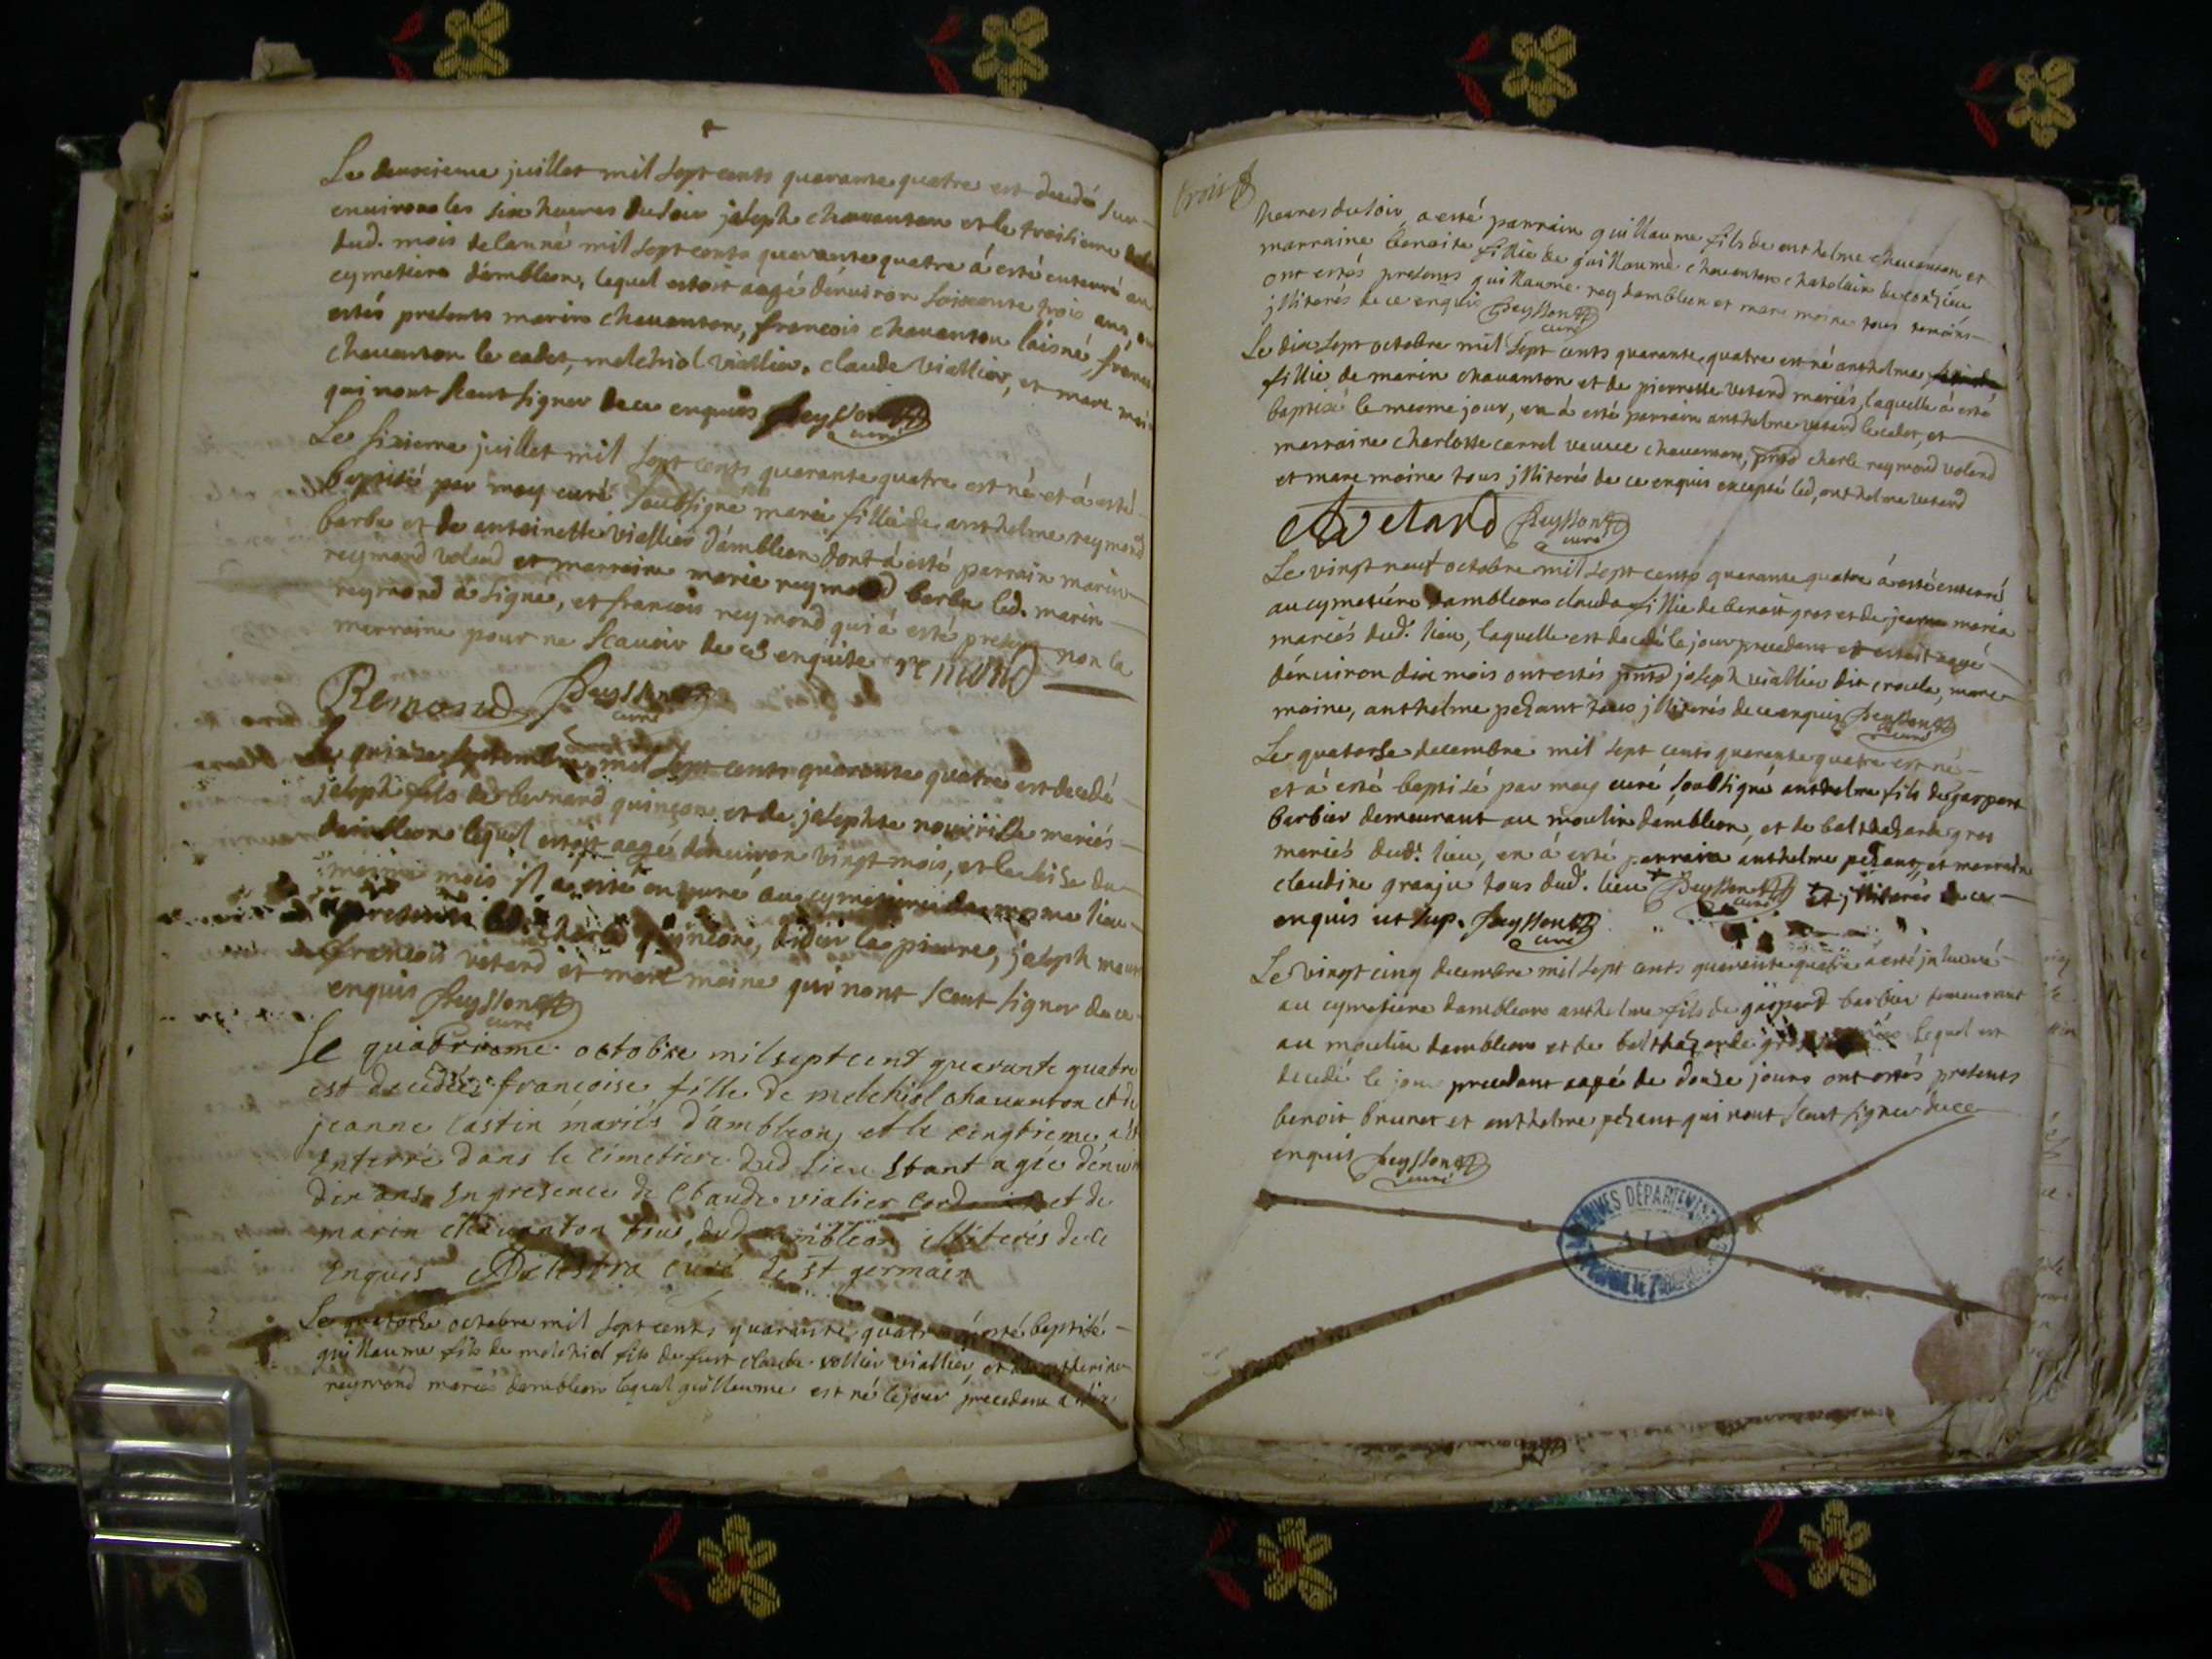 Le deuxieme juillet mil sept cents quarante quatre est decedé sur
environ les six heures du soir joseph chavanton et le troisieme
dud. mois de lanné mil sept cents quarante quatre á esté enterré au
cymetiere dámbleon, lequel estoit aagé dénviron soixante trois ans, ont
estés presents marin chavanton, francois chavanton láisné, francois
chavanton le cadet, melchiol viallier, claude viallier, et marc moine
qui nont sceut signer de ce enquis Peysson curé
Le sixieme juillet mil sept cents quarante quatre est né et á esté
baptisé par moy curé soubsigné marie fillie de anthelme reymond
barbe et de antoinette viallier dámbleon dont á esté parrain marin
reymond voland et marraine marie reymond barbe led. marin
reymond á signé, et francois reymond qui á esté present non la
marraine pour ne scavoir de ce enquise remond
Remond Peysson curé
Le quinze septembre mil sept cents quarante quatre est decedé
joseph fils de bernard quinçon et de josephte nouvrille mariés
dámbleon lequel estoit aagé dénviron vingt mois, et le seise du
mesme mois il á esté enterré au cymetiere du mesme lieu
presents quinçon, didier la pierre, joseph
francois vetard et marc moine qui nont sceut signer de ce
enquis Peysson curé
Le quatrieme octobre mil sept cent quarante quatre
est decedée francoise fille de melchiol chavanton et de
jeanne castin mariés d'ambleon, et le cinqtieme, a été
enterré dans le cimetiere dud lieu étant agée dénviron
dix ans en presence de Claude vialier et de
marin chavanton tous dud ambleon illiterés de ce
enquis Delestra curé de st germain
Le quatorse octobre mil sept cents quarante quatre á esté baptisé
guillaume fils de melchiol fils de fut claude vollier viallier, et de catherine
reymond mariés dambleon lequel guillaume est né le jour precedent a dix
trois
heures du soir, a esté parrain guillaume fils de anthelme chavanton et
marraine benoite fillie de guillaume chavanton chatelain de conzieu
ont estés presents guillaume rey dambleon et marc moine tous temoins
illiterés de ce enquis Peysson curé
Le dix sept octobre mil sept cents quarante quatre est né anthelme
fillie de marin chavanton et de pierrette vetard mariés, laquelle á esté
baptisé le mesme jour, en á esté parrain anthelme vetard le cadet, et
marraine charlotte carrel veuve chavanton, pnts charle reymond voland
et marc moine tous illiterés de ce enquis excepté led. anthelme vetard
A vetard Peysson curé
Le vingt neuf octobre mil sept cents quarante quatre á esté enterré
au cymetiere dambleon clauda fillie de benoit gros et de jeanne maria
mariés dud. lieu, laquelle est decedé le jour precedent et estoit aagé
dénviron dix mois ont estés pnts joseph viallier dit croula, marc
moine, anthelme pezant tous illiterés de ce enquis Peysson curé
Le quatorse decembre mil sept cents quarante quatre est né
et á esté baptisé par moy curé soubsigné anthelme fils de gaspart
barbier demeurant au moulin dambleon, et de balthazarde gros
mariés dud. lieu, en á esté parrain anthelme pezant, et marraine
claudine granju tous dud. lieu + Peysson curé + et illiterés de ce
enquis ut sup. Peysson curé
Le vingt cinq decembre mil sept cents quarante quatre á esté inhumé
au cymetiere dambleon anthelme fils de gaspard barbier demeurant
au moulin dambleon et de balthazarde gros lequel est
decedé le jour precedent aagé de douze jours ont estés presents
benoit brunet et anthelme pezant qui nont sceut signer de ce
enquis Peysson curé
ARCHIVES DÉPARTEMENTALES
AIN